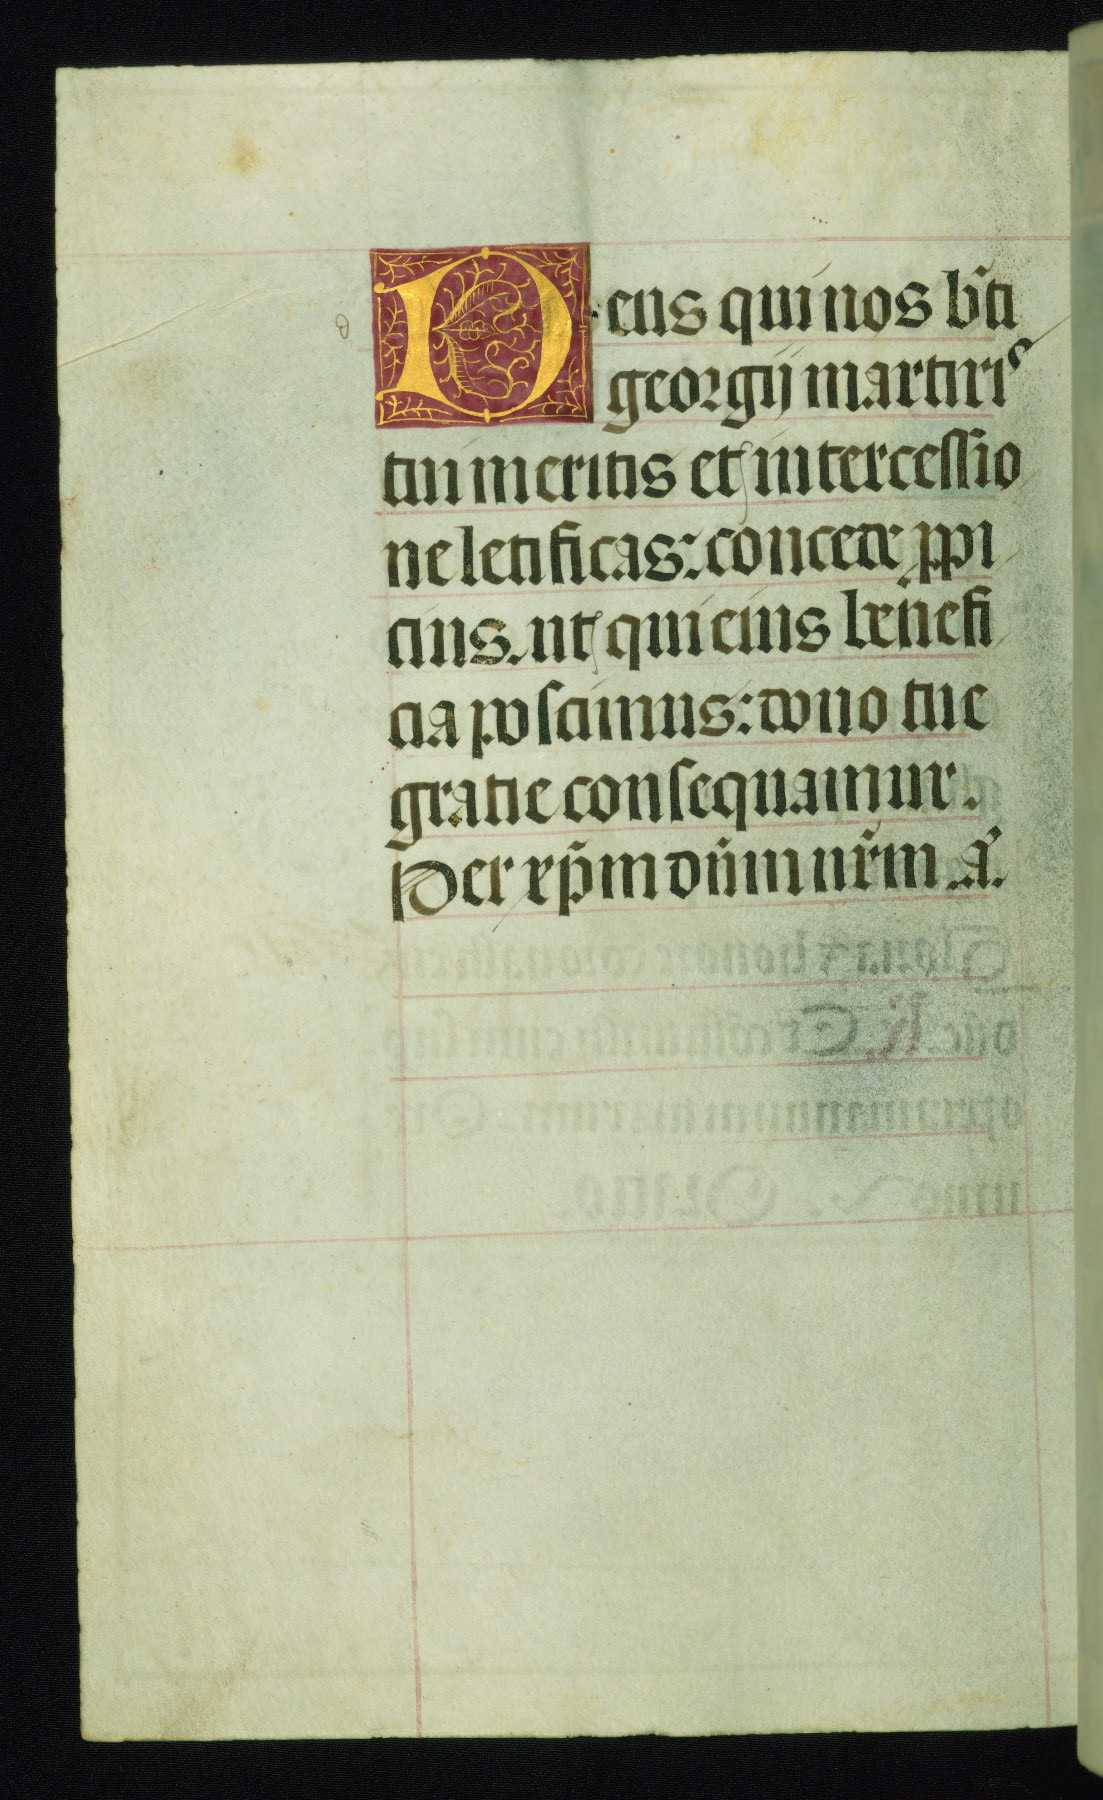 Deus qui nos b̃ti
georgij martiris
tui meritis et intercessio
ne letificas: concede ppi
cius. ut qui eius benefi
cia poscimus: dono tue
gratie consequamur.
Per xp̃m dñm nr̃m. A.